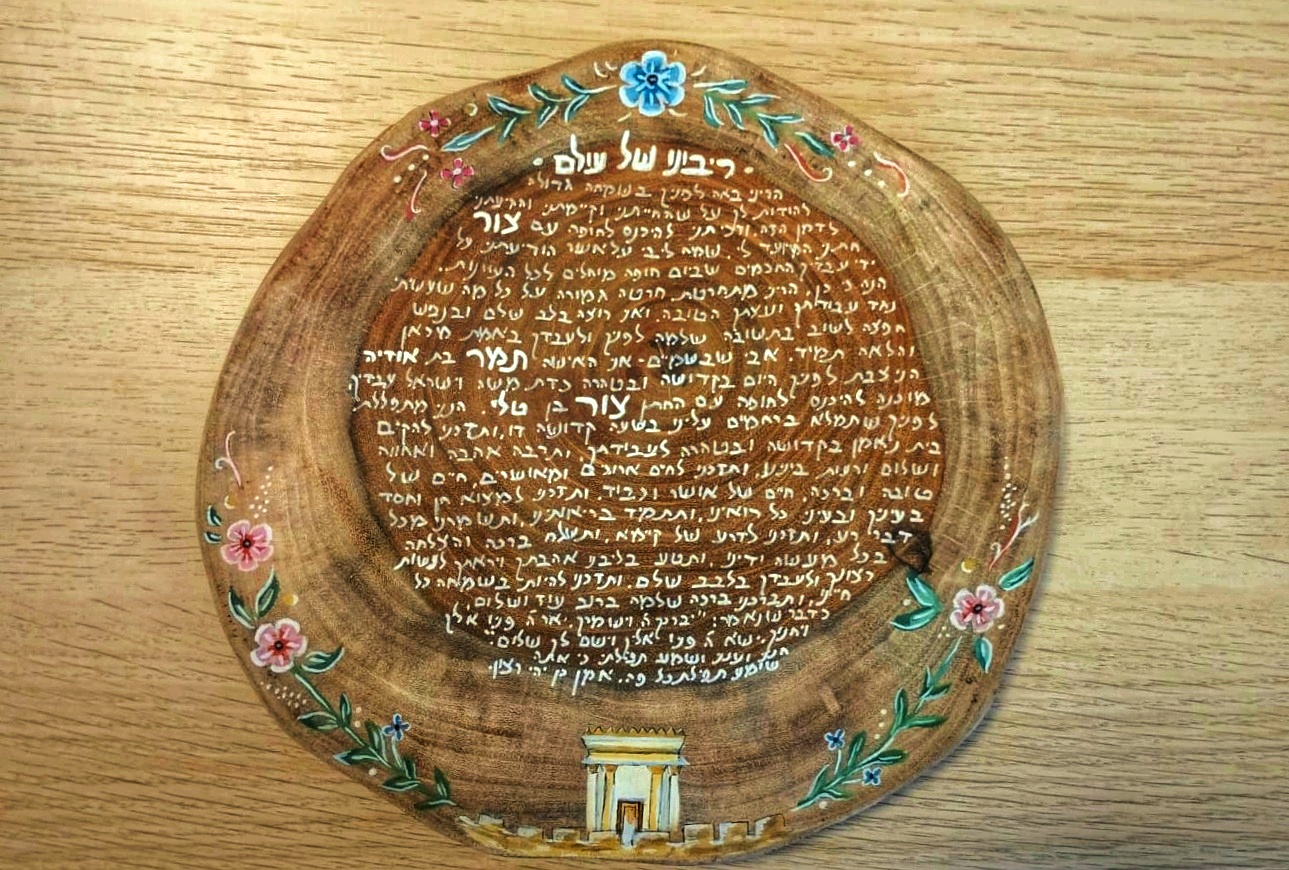 ריבינו של עולם
הריני באה לפניך בשמחה גדולה
להודות לך על שהחייתני וקיימתני והגעתני
לזמן הזה וזיכיתני להיכנס לחופה עם צור
חתני המיועד לי. שמח ליבי על אשר הודיעתני על
ידי עבדיך החכמים שביום חופה מוחלים לכל העוונות.
הנה כי כן, הריני מתחרטת חרטה גמורה על כל מה שעשיתי
נגד עבודתך ועצתך הטובה, ואני רוצה בלב שלם ובנפש
חפצה לשוב בתשובה שלמה לפניך ולעבדך באמת מכאן
והלאה תמיד. אבי שבשמים - אני האישה תמר בת אודיה
הניצבת לפניך היום בקדושה ובטהרה כדת משה וישראל עבדיך
מוכנה להיכנס לחופה עם החתן צור בן טלי. הנני מתפללת
לפניך שתמלא ברחמים עלינו בשעה קדושה זו, ותזכנו להקים
בית נאמן בקדושה ובטהרה לעבודתך, ותרבה אהבה ואחווה
ושלום ורעות בינינו, ותזכנו לחיים ארוכים ומאושרים, חיים של
טובה וברכה, חיים של אושר וכבוד, ותזכנו למצוא חן וחסד
בעיניך ובעיני כל רואינו, ותתמיד בריאותינו, ותשמרנו מכל
דבר רע, ותזכנו לזרע של קיימא, ותשלח ברכה והצלחה
בכל מעשה ידינו, ותטע בליבנו אהבתך ויראתך לעשות
רצונך ולעבדך בלבב שלם. ותזכנו להיותי בשמחה כל
חיינו, ותברכנו ברכה שלמה ברוב עוז ושלום
כדבר שנאמר: "יברכך ה' וישמרך. יאר ה' פניו אליך
ויחנך. ישא ה' פניו אליך וישם לך שלום".
חננו ועננו ושמע תפילתנו כי אתה
שומע תפילת כל פה. אמן כן יהי רצון.